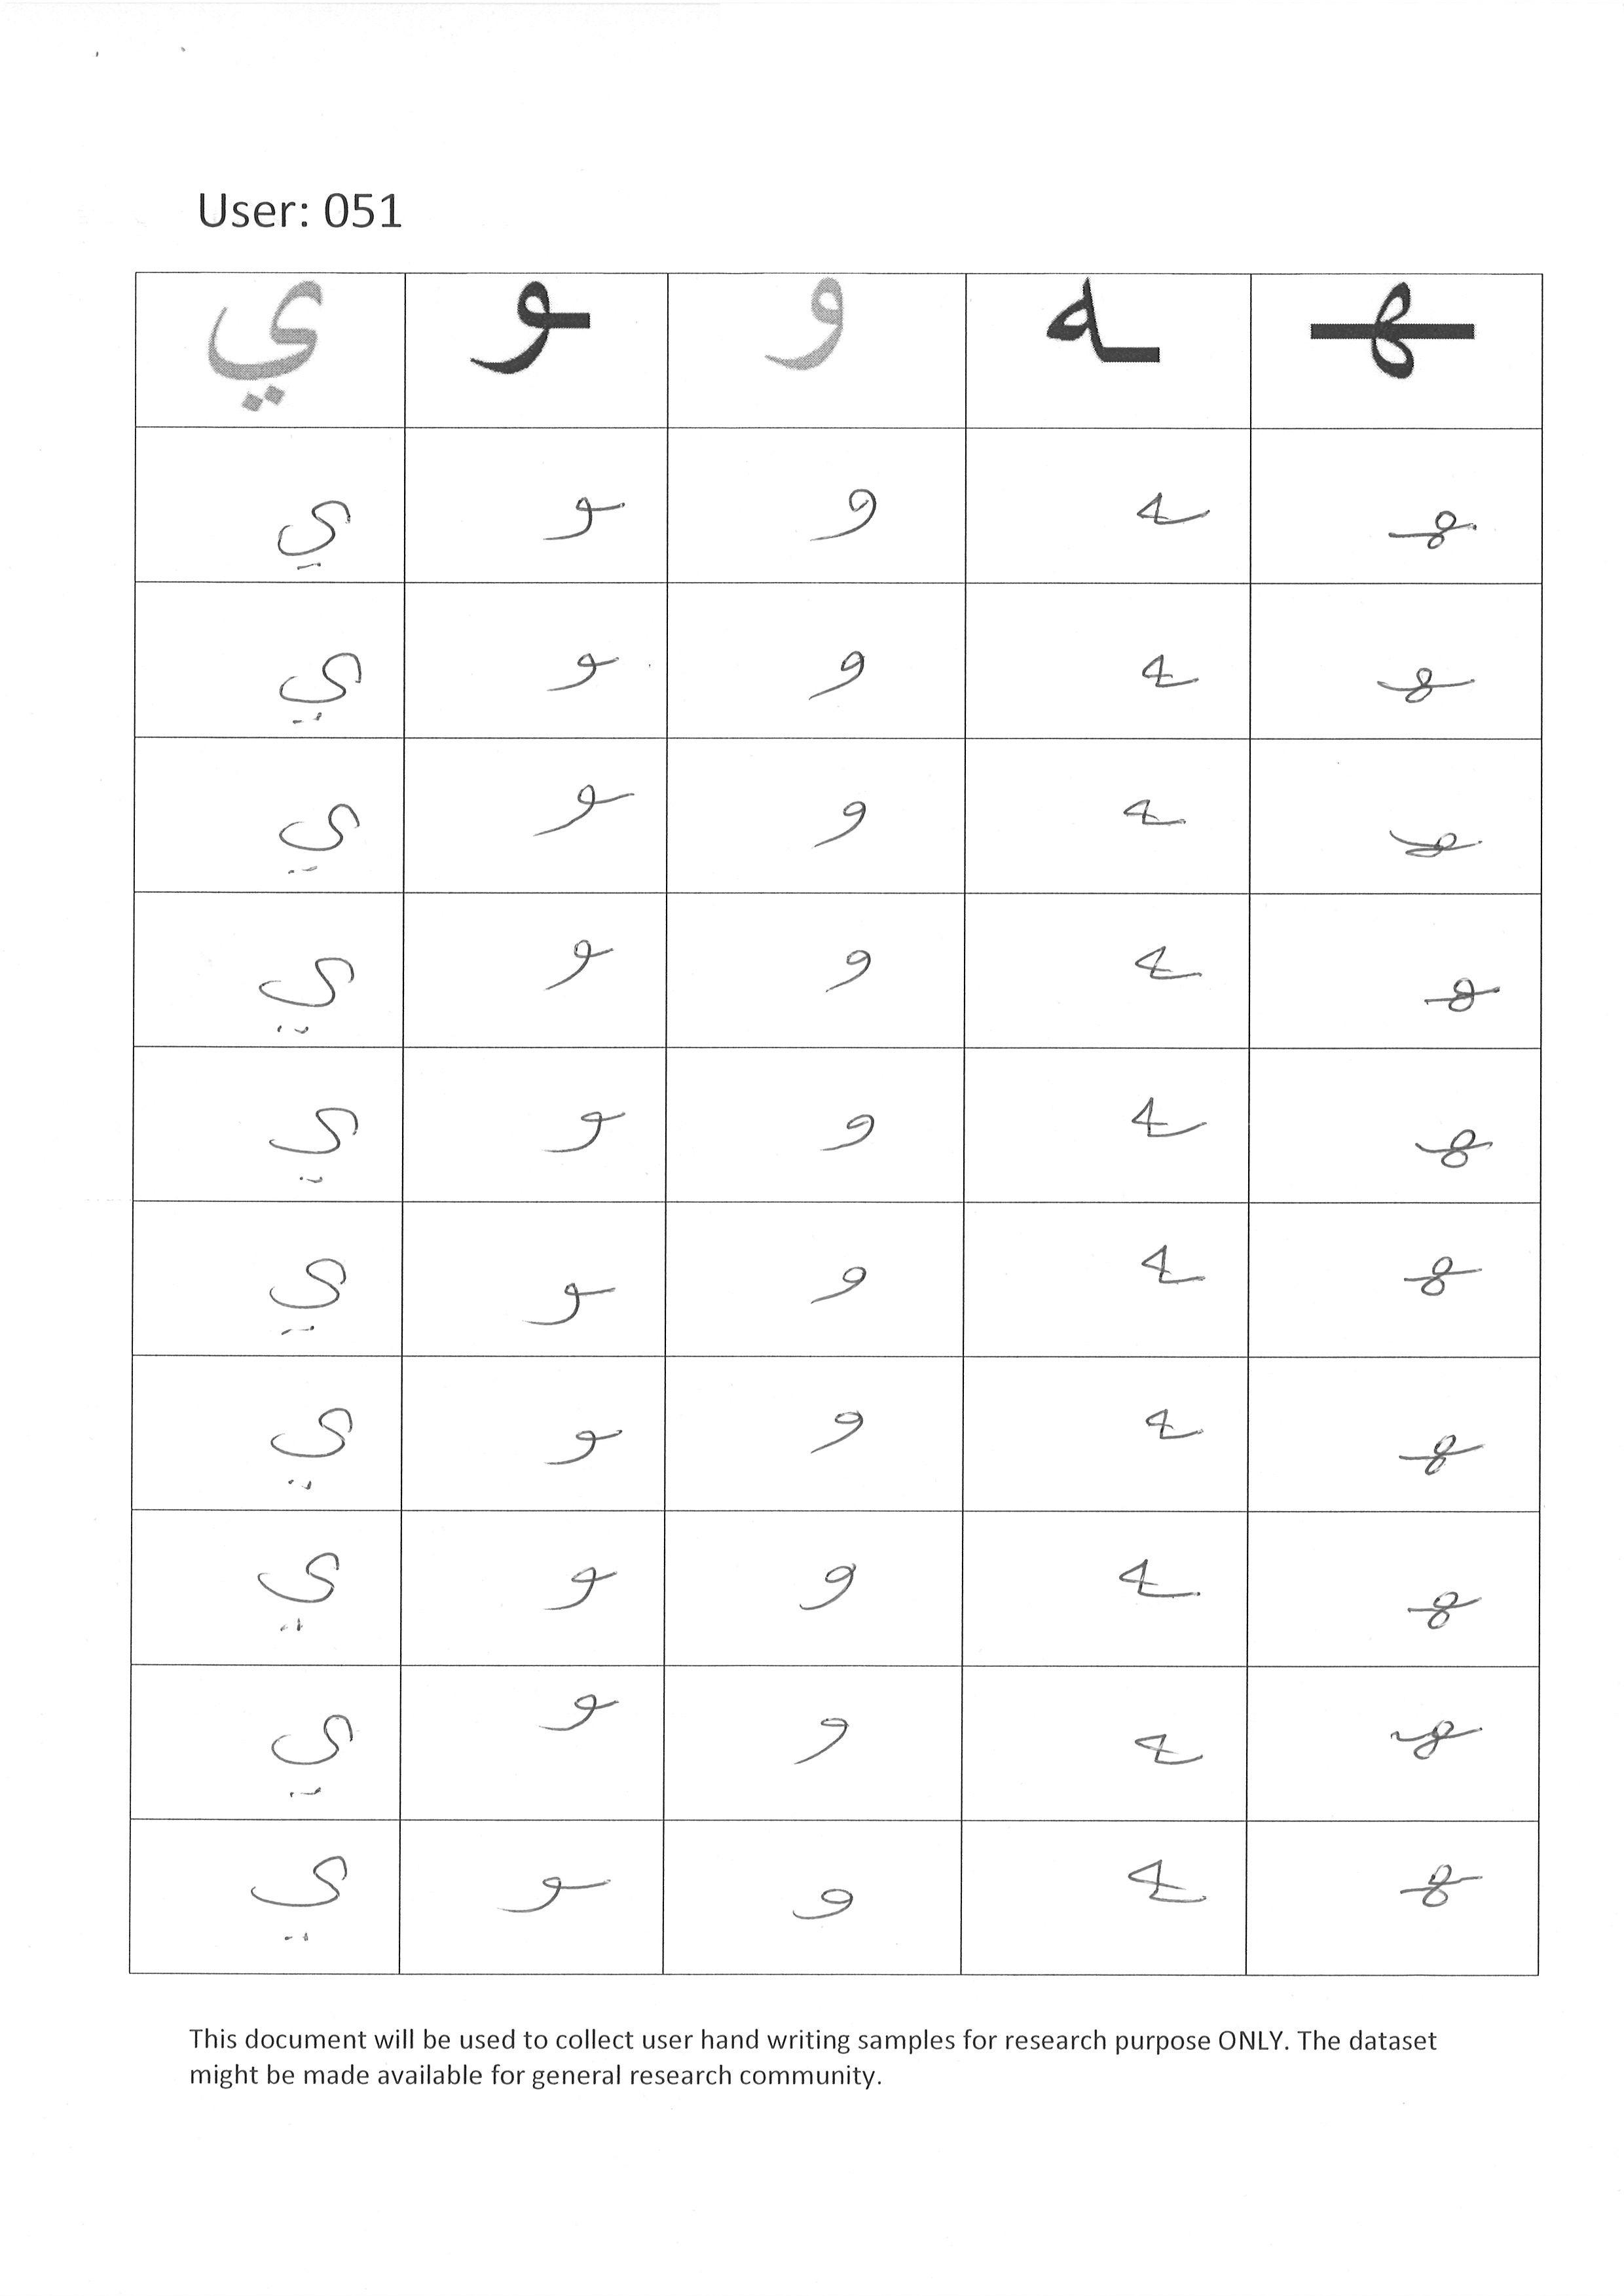 User: 051
ي ـو و ـه ـهـ
ي ـو و ـه ـهـ
ي ـو و ـه ـهـ
ي ـو و ـه ـهـ
ي ـو و ـه ـهـ
ي ـو و ـه ـهـ
ي ـو و ـه ـهـ
ي ـو و ـه ـهـ
ي ـو و ـه ـهـ
ي ـو و ـه ـهـ
ي ـو و ـه ـهـ
This document will be used to collect user hand writing samples for research purpose ONLY. The dataset
might be made available for general research community.